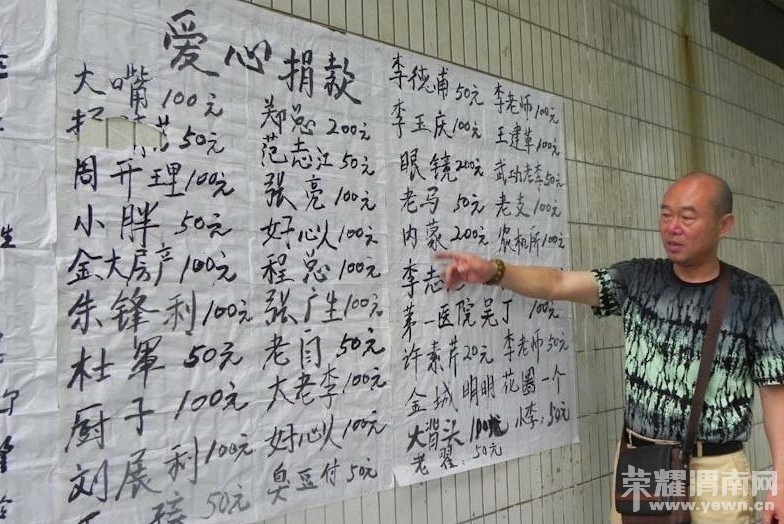 爱心捐款
大嘴100元
50元
周开理100元
小胖50元
金大房产100元
朱锋利100元
杜军50元
厨子100元
刘展利100元
50元
郑总200元
范志江50元
张亮100元
好心人100元
程总100元
张广生100元
老闫50元
大老李100元
好心人100元
臭豆付50元
李德甫50元 李老师100元
李玉庆100元 王建革100元
眼镜200元 武功老李50元
老马50元 老支100元
内蒙200元 农机所100元
李志
第一医院吴丁100元
许素芹20元 李老师50元
金城明明花圈一个
大背头100元 小李:50元
老翟:50元
荣耀渭南网
www.yewn.cn